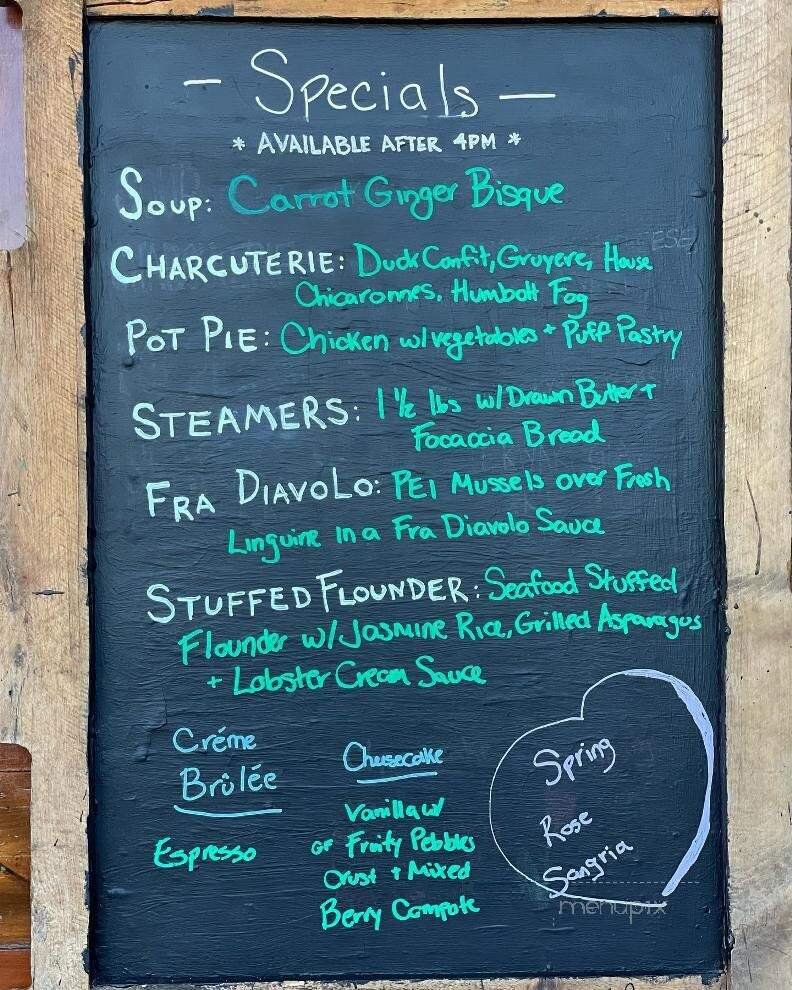 - Specials -
* AVAILABLE AFTER 4PM *
Soup: Carrot Ginger Bisque
CHARCUTERIE: Duck Confit, Gruyere, House
Chicaronnes, Humbolt Fog
POT PIE: Chicken w/vegetables + Puff Pastry
STEAMERS: 1 ½ lbs w/Drawn Butter +
Focaccia Bread
FRA DIAVOLO: PEI Mussels over Fresh
Linguine In a Fra Diavolo Sauce
STUFFED FLOUNDER: Seafood Stuffed
Flounder w/Jasmine Rice, Grilled Asparagus
+ Lobster Cream Sauce
Créme
Brûlée
Espresso
Cheesecake
Vanilla w/
GF Fruity Pebbles
Crust + Mixed
Berry Compote
Spring
Rose
Sangria
menupix